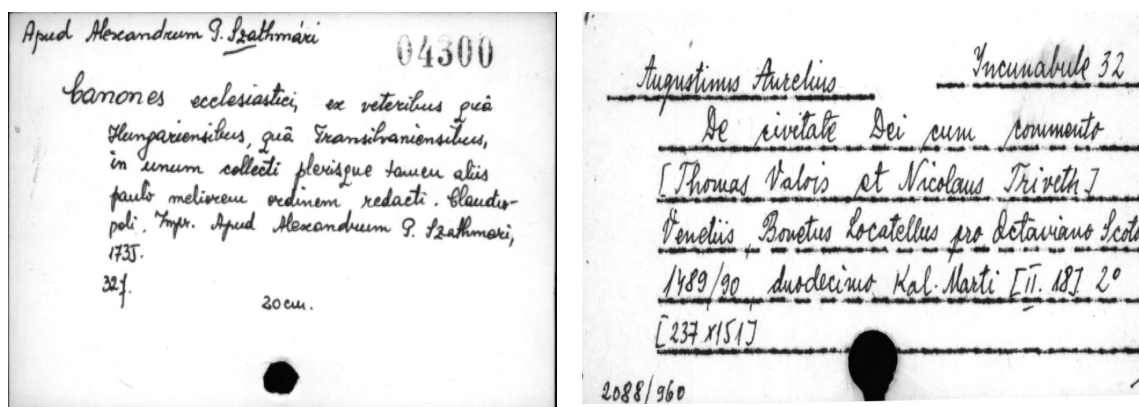 Apud Alexandrum P. Szathmári
04300
Canones ecclesiastici, ex veteribus quâ
Hungariensibus, quâ Transilvaniensibus,
in unum collecti plerisque tamen aliis
paulò meliorem ordinem redacti. Claudio-
poli, Impr. Apud Alexandrum P. Szathmari,
1735.
32 f.
20 cm.
Augustinus Aurelius
Incunabule 32
De civitate Dei cum commento
[Thomas Valois et Nicolaus Triveth]
Venetiis, Bonetus Locatellus pro Octaviano Scoto
1489/90 duodecimo Kal. Marti [II. 18] 2°
[237 x 151]
2088/960